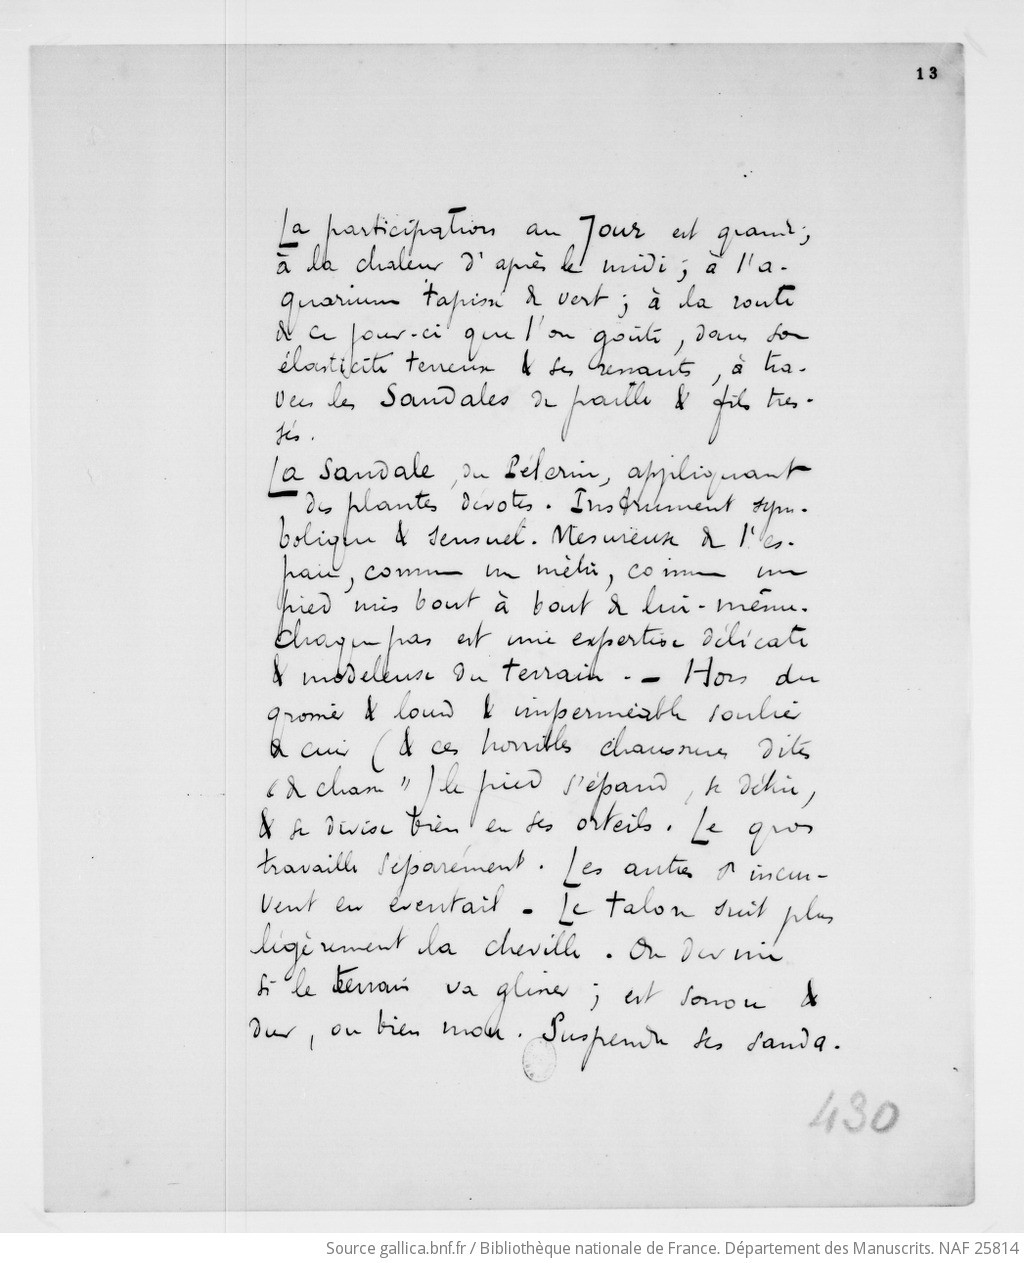 13
La participation au Jour est grande ;
à la chaleur d'après le midi ; à l'a-
quarium tapissé de vert ; à la route
de ce jour-ci que l'on goûte, dans son
élasticité terreuse & ses ressauts, à tra-
vers les Sandales de paille & fils tres-
sés.
La Sandale, du Pèlerin, appliquant
des plantes dévotes. Instrument sym-
bolique & sensuel. Mesureuse de l'es-
pace, comme un mètre, comme un
pied mis bout à bout de lui-même.
chaque pas est une expertise délicate
& modeleuse du terrain. - Hors du
grossier & lourd & imperméable soulier
de cuir (& ces horribles chaussures dites
"de chasse") le pied s'épand, se détire,
& se divise bien en ses orteils. Le gros
travaille séparément. Les autres s'incur-
vent en éventail. Le talon suit plus
légèrement la cheville. On devine
si le terrain va glisser ; est sonore &
dur, ou bien mou. Suspendre ses sanda-
430
Source gallica.bnf.fr / Bibliothèque nationale de France. Département des Manuscrits. NAF 25814